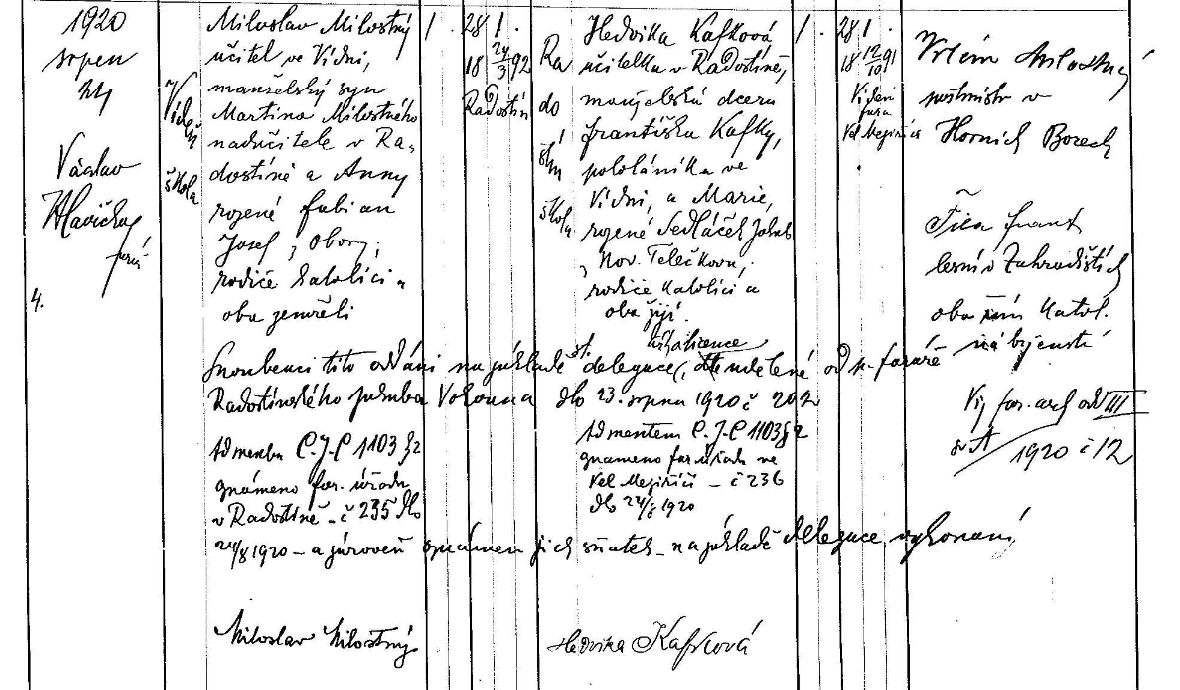 1920
srpen
24
Václav
Hlavička
farář
4.
Vídeň
škola
Miloslav Milostný
učitel ve Vídni,
manželský syn
Martina Milostného
nadučitele v Ra-
dostíně a Anny
rozené Fabian
Josef, Obory;
rodiče katolíci a
oba zemřeli
1. 28 1.
18 24/3 92
Radostín
Radostín
škola
Hedvika Kafková
učitelka v Radostíně,
manželská dcera
Františka Kafky,
pololáníka ve
Vídni, a Marie,
rozené Sedláček Jakub
Nov. Telečkova,
rodiče katolíci a
oba žijí.
1. 28 1.
18 12/10 91
Vídeň
fara
Vel Meziříčí
Vilém Milostný
poštmistr v
Horních Borech
Fica Frant
lesní v Zahradištích
oba řím katol.
náboženství
Snoubenci tito oddáni na základě delegace, udělené od p. faráře
Radostínského Jakuba Vokouna dto 23. srpna 1920 č 202
Ad mentem C.J.C 1103 § 2
oznámeno far. úřadu
v Radostíně - č 235 dto
24/8 1920 - a zároveň oznámen jich sňatek - na základě delegace vykonaný
Ad mentem C.J.C 1103 § 2
oznámeno far úřadu ve
Vel Meziříčí - č 236
dto 24/8 1920
Viz far. arch odd III
1920 č 12
Miloslav Milostný
Hedvika Kafková